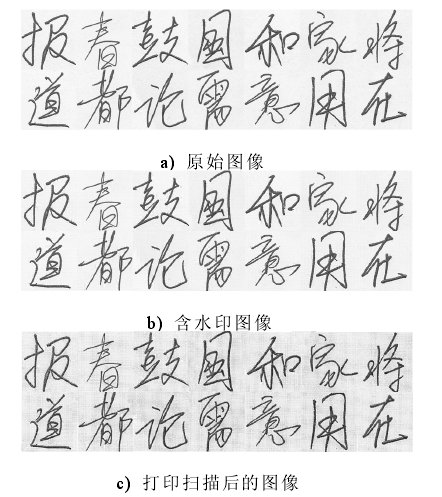 报春鼓国和家将
道都论需意用在
a) 原始图像
报春鼓国和家将
道都论需意用在
b) 含水印图像
报春鼓国和家将
道都论需意用在
c) 打印扫描后的图像